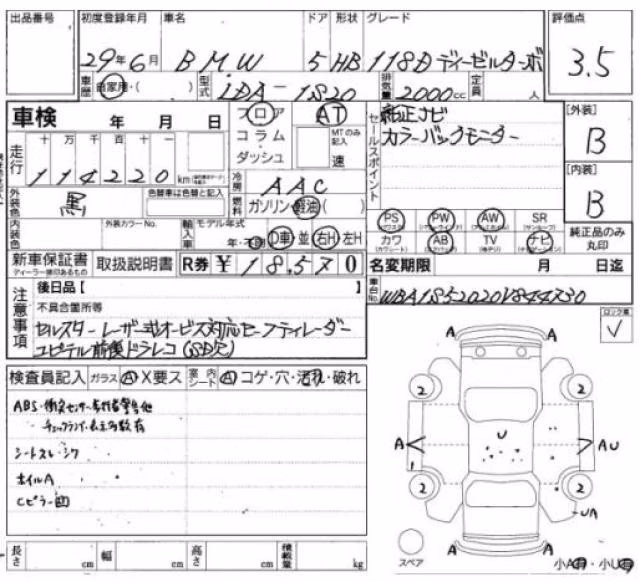 出品番号 初度登録年月 車名 ドア 形状 グレード 評価点
29年6月 BMW 5 HB 118D ディーゼルターボ 3.5
車歴 自家用・( ) 型式 LDA-1S20 排気量 2000cc 定員 人
車検 年 月 日 フロア AT 純正ナビ [外装]
コラム MTのみ記入 セールスポイント カラーバックモニター B
ダッシュ 速
走行 十 万 千 百 十 一
114220 km 冷房 AAC [内装]
外装色 黒 色替車は色替と記入 燃料 ガソリン・軽油( ) B
内装色 外装カラーNo. 輸入車 モデル年式 PS PW AW SR
年・不明 D車 並 右H 左H カワ AB TV ナビ 純正品のみ丸印
新車保証書 取扱説明書 R券 ¥18,570 名変期限 月 日迄
ディーラー捺印あるもの
注意事項 後日品【 】 車台No. WBA1S52020V844730
不具合箇所等 ロック有
セルスター レーザー式オービス対応セーフティレーダー
ユピテル前後ドラレコ(SD欠)
検査員記入 ガラス A X要ス 室内シート A コゲ・穴・汚れ・破れ
ABS・衝突センサー・歩行者警告他
チェックランプ・表示多数有
シートスレ・シワ
ホイルA
Cピラー凹
A A
2 2
U
A AU
2 2
UA
A A
スペア 小A有・小U有
長さ cm 幅 cm 高さ cm 積載量 kg